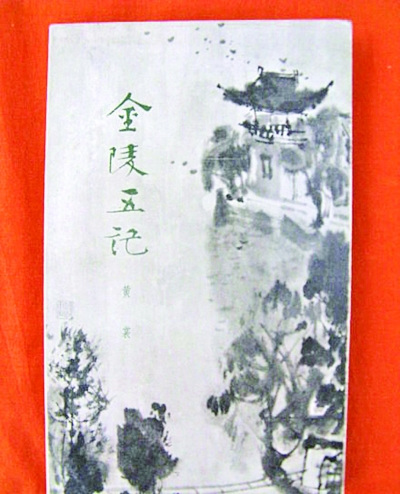 金陵五记
黄裳